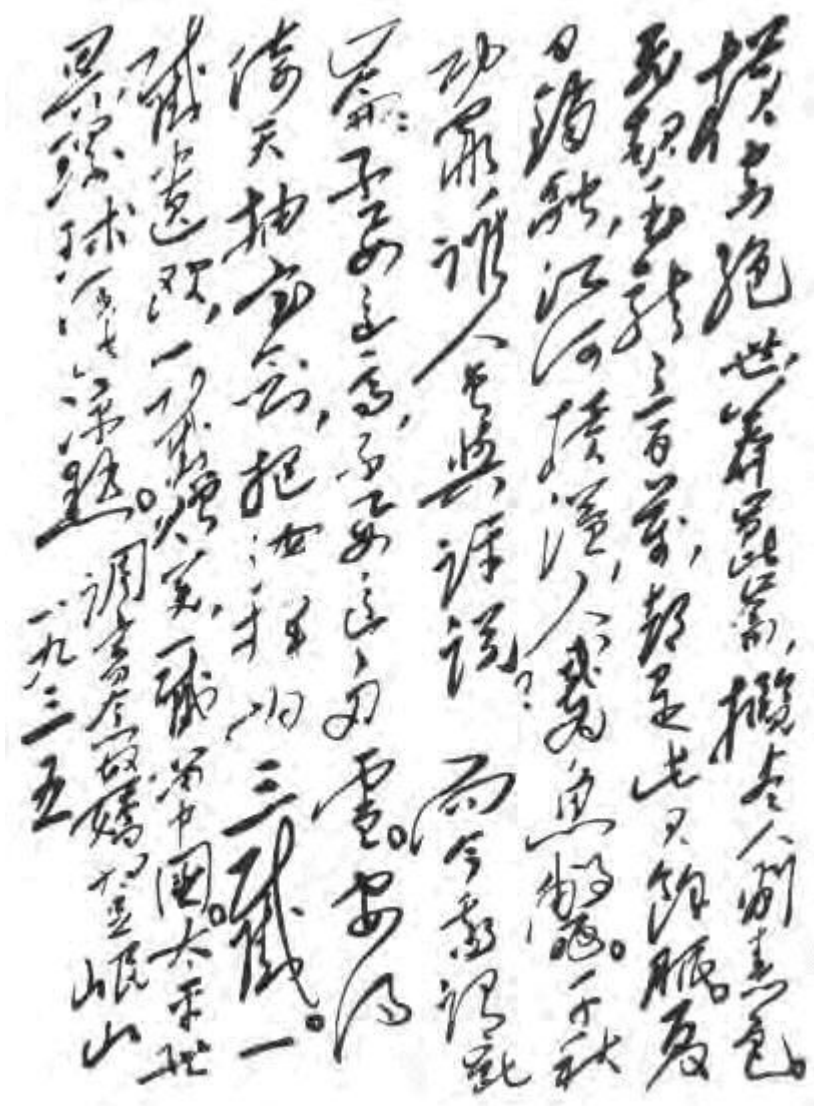 橫空绝世,莽崑崙,攬尽人间春色。
飛起玉龍三百萬,都是此餘脈。夏
日銷融,江河橫溢,人或為魚鱉。千秋
功罪,誰人曾與評說? 而今我謂崑
崙:不要這高,不要這多雪。安得
倚天抽宝剑,把汝为三截。一
截遺欧,一截贈美,一截留中國。太平世
界,環球同此凉熱。
調寄念奴嬌登岷山
一九三五